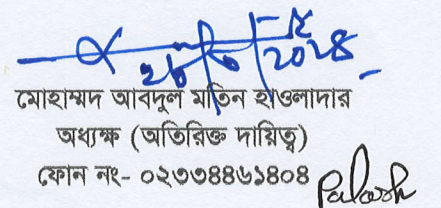 মোহাম্মদ আবদুল মতিন হাওলাদার
অধ্যক্ষ (অতিরিক্ত দায়িত্ব)
ফোন নং- ০২৩৩৪৪৬১৪০৪
Palash